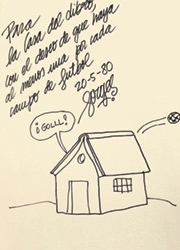 Para
la Casa del libro,
con el deseo de que haya
al menos una por cada
campo de futbol
20-5-80
Forges
¡GOLLL!